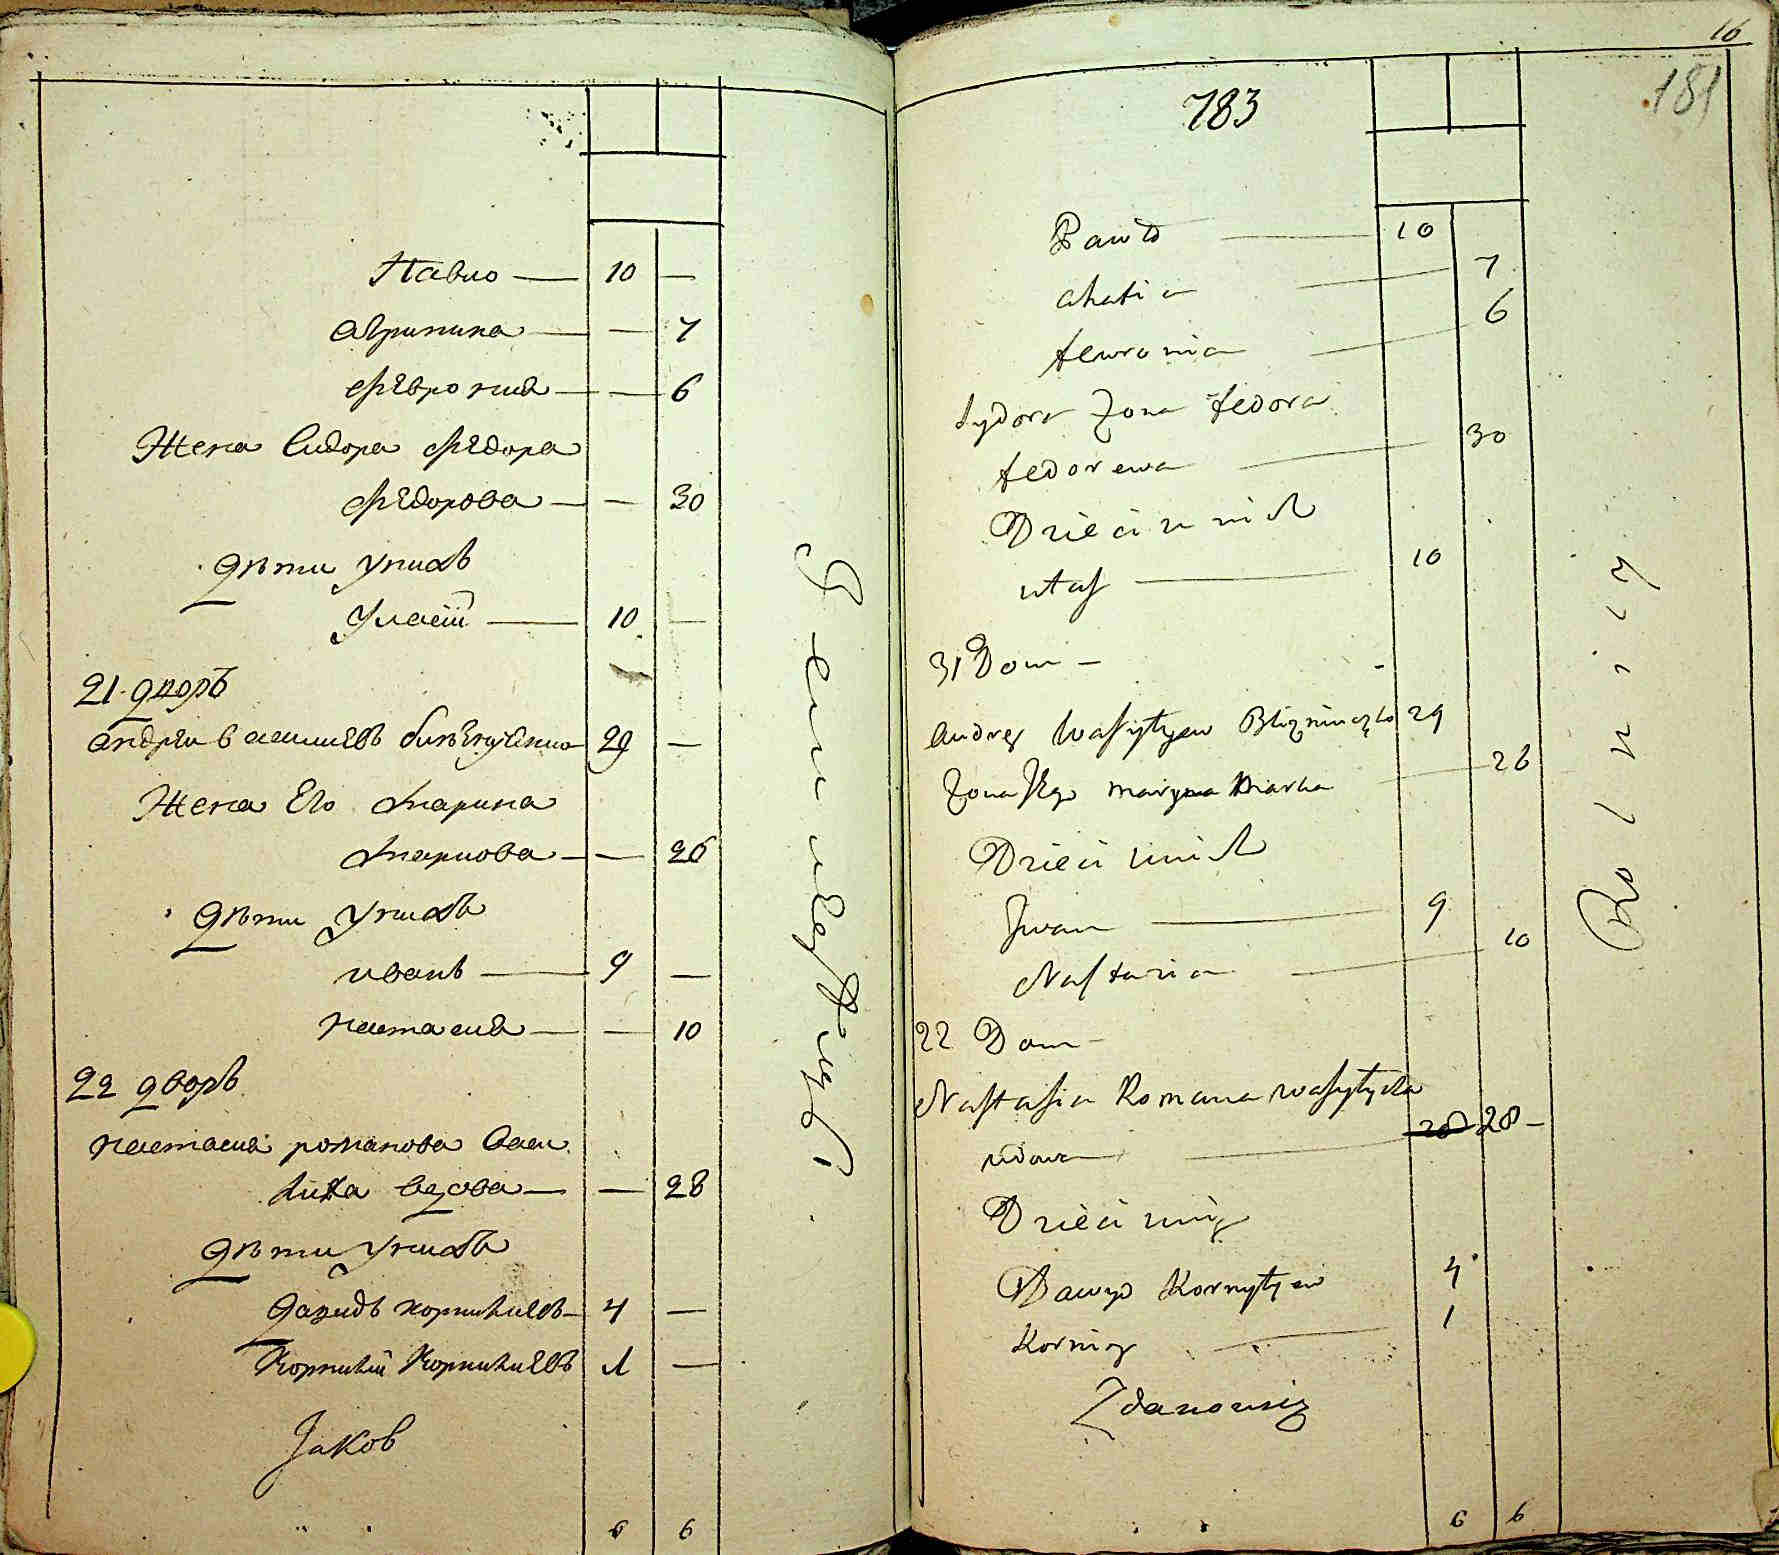 Павло — 10 —
Агрипина — — 7
Феврония — — 6
Жена Сидора Федора
Федорова — — 30
Дѣти у нихъ
Улаей — 10 —
21 дворъ
Андреи Василиевъ 29 —
Жена Его Марина
Маркова — — 26
Дѣти у нихъ
иванъ — 9 —
настасия — — 10
22 дворъ
настасия романова Васи
лиха вдова — — 28
Дѣти у нихъ
Давидъ корнилиевъ — 4 —
Корнилий Корнилиевъ 1 —
Jаков
6 6
16
181
783
Pawło — 10
ahafia — 7
fewronia — 6
Sydora Zona fedora
fedorowa — 30
Dzieci u nich
ułas — 10
31 Dom —
Andrey Wasylyew 29
Zona Jego Maryna Marka — 26
Dzieci u nich
Jwan — 9
Nastazia — 10
22 Dom —
Nastasia Romana Wasylycha
udowa — 28 —
Dzieci u niey
Dawyd Kornyłyew 4
Korniy — 1
Zdanowicz
6 6
Rolnicy